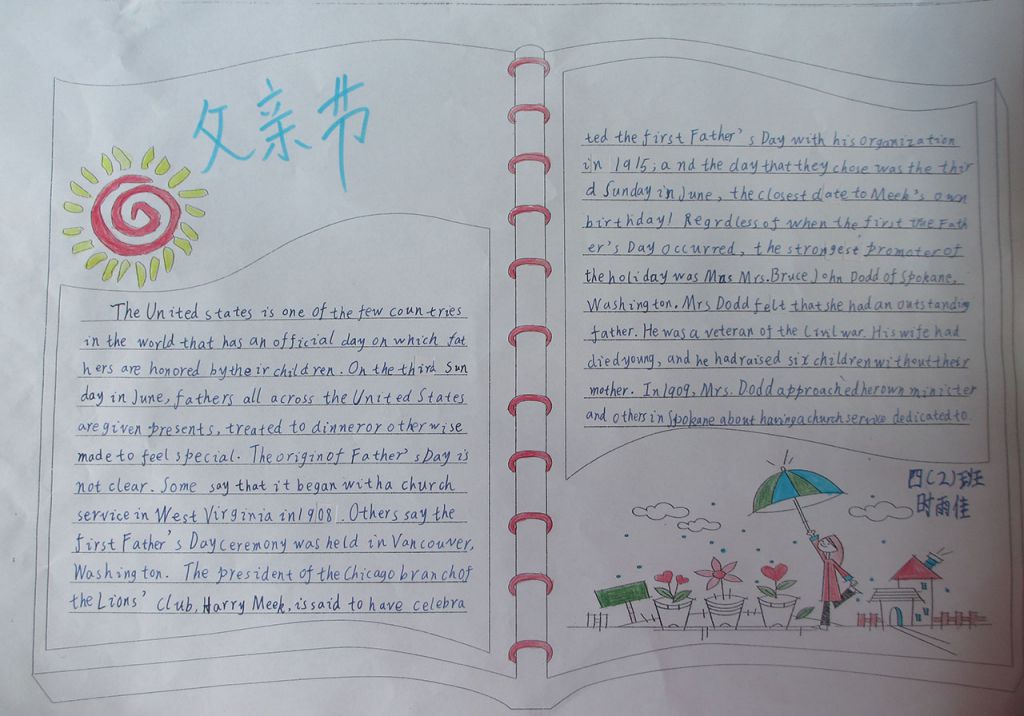 父亲节
The United states is one of the few countries
in the world that has an official day on which fat
hers are honored by their children. On the third Sun
day in June, fathers all across the United States
are given presents, treated to dinner or otherwise
made to feel special. The origin of Father's Day is
not clear. Some say that it began with a church
service in West Virginia in 1908. Others say the
first Father's Day ceremony was held in Vancouver,
Washington. The president of the Chicago branch of
the Lions' Club, Harry Meek, is said to have celebra
ted the first Father's Day with his organization
in 1915; and the day that they chose was the thir
d Sunday in June, the closest date to Meek's own
birthday! Regrdless of when the first true Fath
er's Day occurred, the strongest promoter of
the holiday was Mns Mrs. Bruce John Dodd of Spokane,
Washington. Mrs Dodd felt that she had an outstanding
father. He was a veteran of the war. His wife had
died young, and he had raised six children without their
mother. In 1909, Mrs. Dodd approached her own minister
and others in Spokane about having a church service dedicated to
四(2)班
时雨佳